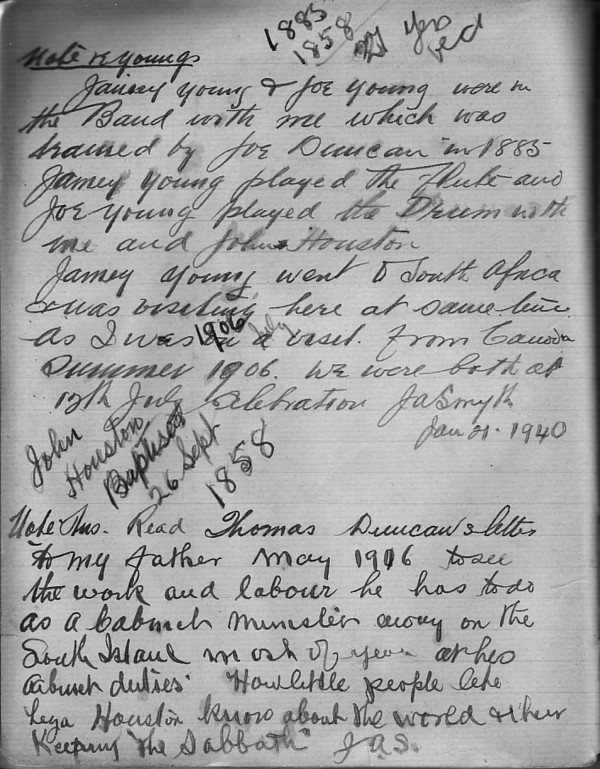 1885
1858
27 yrs
old
Note re Youngs
Jamey Young & Joe Young were in
the Band with me which was
trained by Joe Duncan in 1885
Jamey Young played the Flute and
Joe Young played the Drum with
me and John Houston
Jamey Young went to South Africa
& was visiting here at same time
as I was on a visit. from Canada
1906 July
Summer 1906. we were both at
12th July Celebration JaSmyth
Jan 21. 1940
John
Houston
Baptised
26 Sept
1858
Note This. Read Thomas Duncan's letter
to my father May 1906 to see
the work and labour he has to do
as a Cabinet Minister away on the
South Island most of year at his
Cabinet duties. How little people like
Houston know about the world & their
Keeping "the Sabbath" J.A.S.